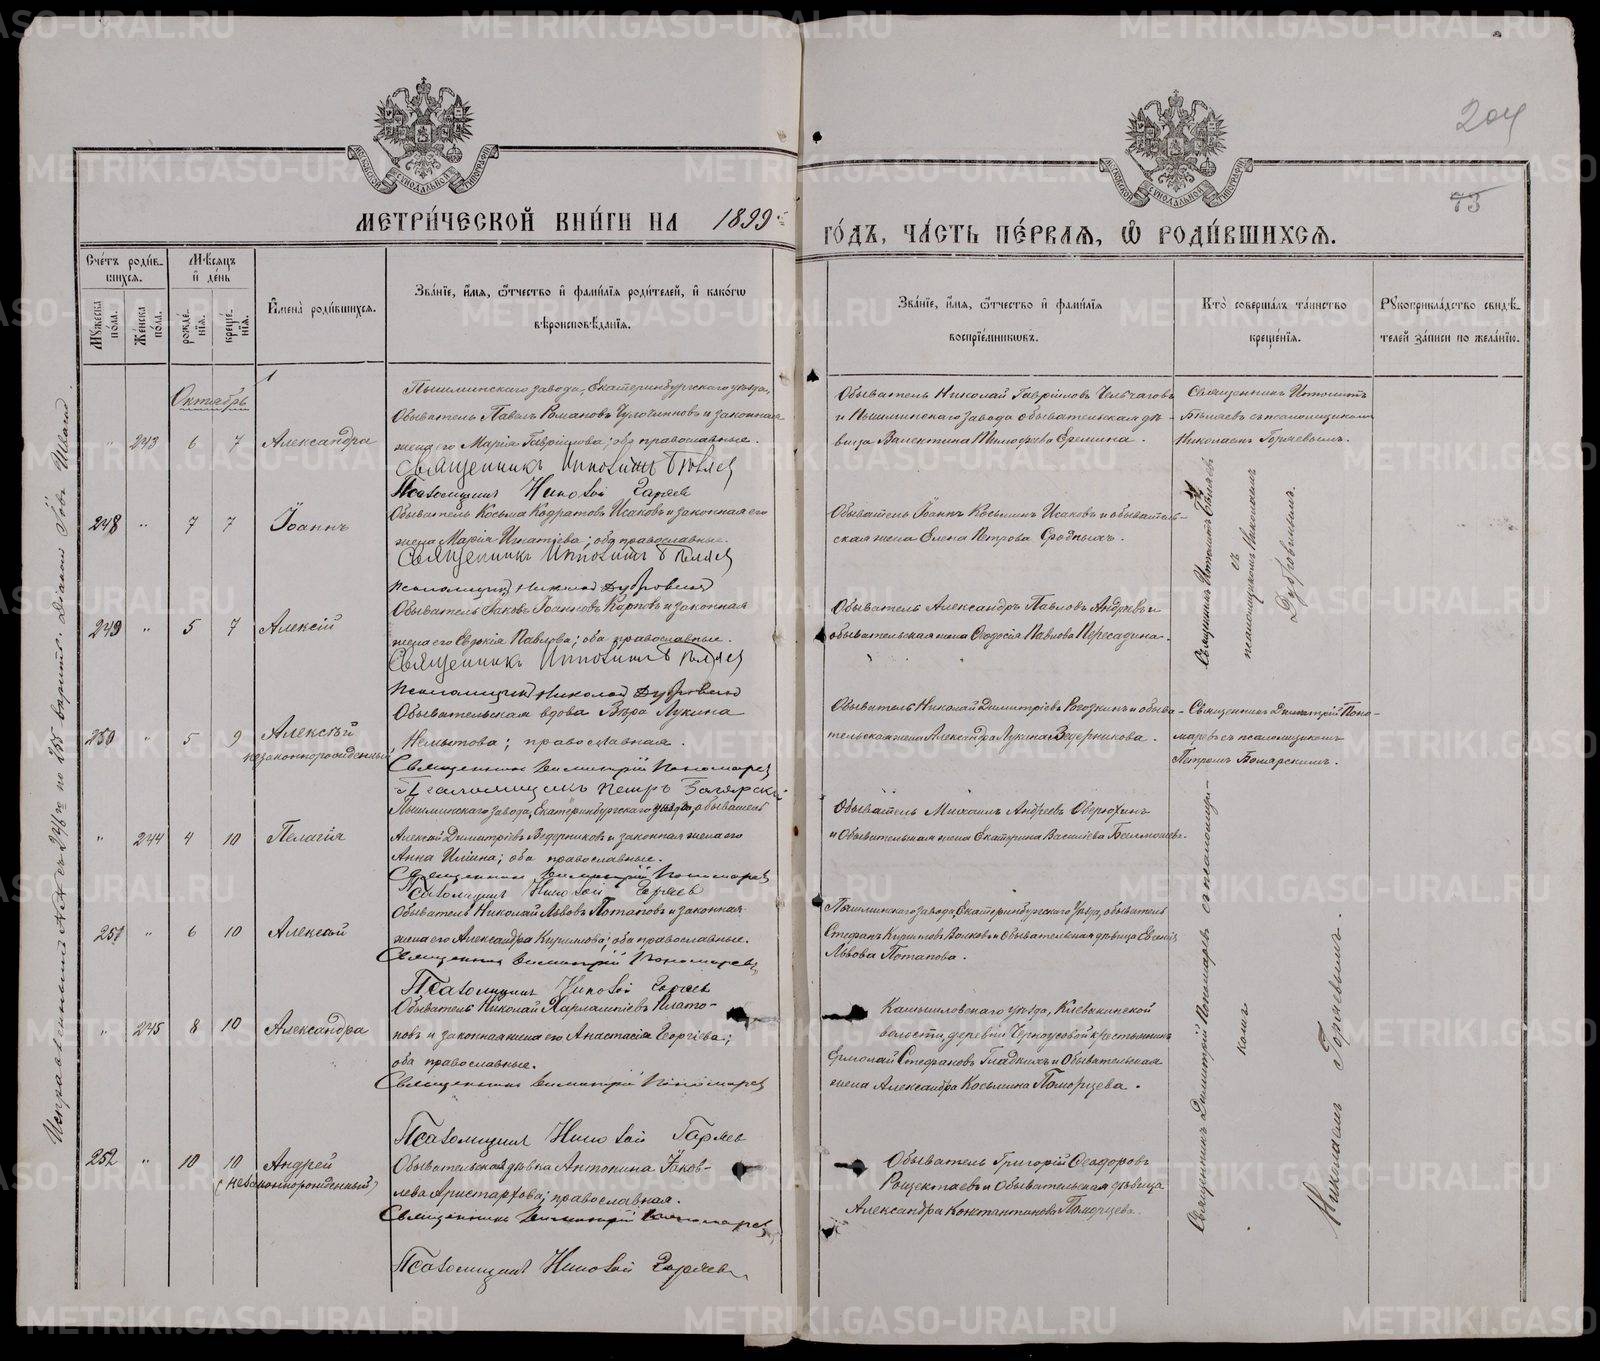 204
75
МЕТРИ́ЧЕСКОЙ КНИ́ГИ НА 1899
ГО́ДЪ, ЧА́СТЬ ПЕ́РВАѦ, Ѡ РОДИ́ВШИХСѦ.
Сче́тъ роди́в-
шихся.
Мꙋжеска по́ла.
Же́нска по́ла.
Мѣсяцъ и де́нь
рожде́-
нїя.
креще́-
нїя.
Имена̀ роди́вшихся.
Зва́нїе, и́мя, ѻ́тчество и фами́лїя роди́телей, и како́гѡ
вѣроисповѣ́данїя.
Зва́нїе, и́мя, ѻ́тчество и фами́лїя
воспрїе́мникѡвъ.
Кто̀ соверша́лъ та́инство
креще́нїя.
Рꙋкоприкла́дство свидѣ́-
телей за́писи по жела́нїю.
Октябрь
Пышминскаго завода, Екатеринбургскаго уѣзда,
Обыватель Павелъ Романовъ и законная
" 243 6 7 Александра
жена его Марія Гавріилова; оба православные.
Священникъ Ипполитъ Бѣляев
Псаломщик Николай Горяев
Обыватель Николай Гавріиловъ
и Пышминскаго завода обывательская дѣ-
вица Валентина Тимофеева Еремина.
Священникъ Ипполитъ
Бѣляевъ съ псаломщикомъ
Николаемъ Горяевымъ.
248 " 7 7 Іоаннъ
Обыватель Косьма Кодратовъ Исаковъ и законная его
жена Марія Игнатіева; оба православные.
Священникъ Ипполитъ Бѣляев
Псаломщикъ Николай Дубровинъ
Обыватель Іоаннъ Косьминъ Исаковъ и обыватель-
ская жена Елена Петрова
Священникъ Ипполитъ Бѣляевъ
съ
псаломщикомъ Николаемъ
Дубровинымъ.
249 " 5 7 Алексій
Обыватель Іаковъ Іоанновъ Карповъ и законная
жена его Евдокія Павлова; оба православные.
Священникъ Ипполитъ Бѣляев
Псаломщикъ Николай Дубровинъ
Обыватель Александръ Павловъ Андреевъ и
обывательская жена Ѳеодосія Павлова Пересадина.
250 " 5 9 Алексѣй
незаконнорожденный
Обывательская вдова Вѣра Лукина
Немытова; православная.
Священникъ Димитрій Пономарев
Псаломщикъ Петръ Боярскій
Обыватель Николай Димитріевъ Рогозкинъ и обыва-
тельская жена Александра Лукина Ведерникова.
Священникъ Димитрій Поно-
маревъ съ псаломщикомъ
Петромъ Боярскимъ.
" 244 4 10 Пелагія
Пышминскаго завода, Екатеринбургскаго уѣзда, обыватель
Алексѣй Димитріевъ Ведерниковъ и законная жена его
Анна Ильина; оба православные.
Священникъ Димитрій Пономарев
Псаломщик Николай Горяев
Обыватель Михаилъ Андреевъ Оверюхинъ
и Обывательская жена Екатерина Васильева
251 " 6 10 Алексѣй
Обыватель Николай Львовъ Потаповъ и законная
жена его Александра Кирилова; оба православные.
Священникъ Димитрій Пономарев
Псаломщик Николай Горяев
Пышминскаго завода, Екатеринбургскаго уѣзда, обыватель
Стефанъ Кириловъ Волковъ и Обывательская дѣвица Евгенія
Львова Потапова.
" 245 8 10 Александра
Обыватель Николай Харлампіевъ Плато-
новъ и законная жена его Анастасія Георгіева;
оба православные.
Священникъ Димитрій Пономарев
Псаломщик Николай Горяев
Камышловскаго уѣзда,
волости, деревни Черноусовой крестьянинъ
Ермолай Стефановъ Гладкихъ и Обывательская
жена Александра Косьмина Поморцева.
252 " 10 10 Андрей
(незаконнорожденный)
Обывательская дѣвка Антонина Іаков-
лева Аристархова; православная.
Священникъ Димитрій Пономарев
Псаломщик Николай Горяев
Обыватель Григорій Ѳеодоровъ
Рощектаевъ и Обывательская дѣвица
Александра Константинова Поморцева.
Священникъ Димитрій Пономаревъ съ псаломщи-
комъ
Николаемъ Горяевымъ.
METRIKI.GASO-URAL.RU